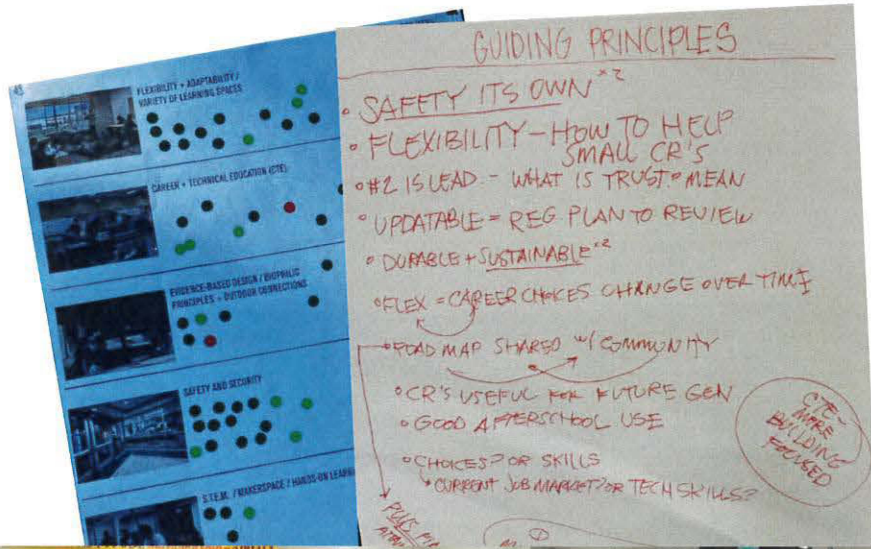 FLEXIBILITY + ADAPTABILITY /
VARIETY OF LEARNING SPACES
CAREER + TECHNICAL EDUCATION (CTE)
EVIDENCE-BASED DESIGN / BIOPHILIC
PRINCIPLES + OUTDOOR CONNECTIONS
SAFETY AND SECURITY
S.T.E.M. / MAKERSPACE / HANDS-ON LEARN
GUIDING PRINCIPLES
• SAFETY ITS OWN x2
• FLEXIBILITY - HOW TO HELP
SMALL CR'S
• #2 IS LEAD - WHAT IS TRUST? MEAN
• UPDATABLE = REG PLAN TO REVIEW
• DURABLE + SUSTAINABLE x2
• FLEX = CAREER CHOICES CHANGE OVER TIME
• ROAD MAP SHARED w/ COMMUNITY
• CR'S USEFUL FOR FUTURE GEN
• GOOD AFTERSCHOOL USE
• CHOICES? OR SKILLS
• CURRENT JOB MARKET? OR TECH SKILLS?
CTE -
MORE
BUILDING
FOCUSED